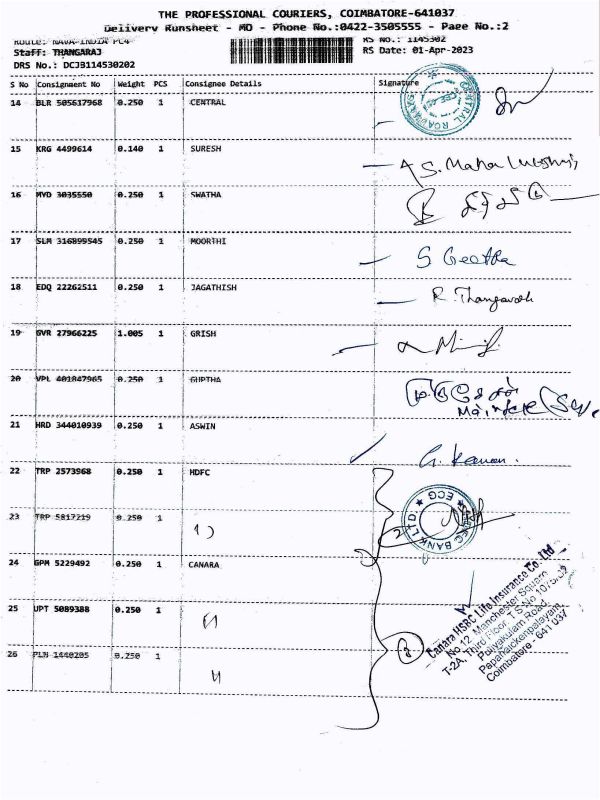 THE PROFESSIONAL COURIERS, COIMBATORE-641037
Delivery Runsheet - MO - Phone No.:0422-3505555 - Page No.:2
Route: NAVA-INDIA PC4 RS No.: 1145302
Staff: THANGARAJ RS Date: 01-Apr-2023
DRS No.: DCJB114530202
S No Consignment No Weight PCS Consignee Details Signature
14 BLR 505617968 0.250 1 CENTRAL
CENTRAL ROADWAYS
15 KRG 4499614 0.140 1 SURESH
16 MYD 3035550 0.250 1 SWATHA
17 SLM 316899545 0.250 1 MOORTHI S Geetha
18 EDQ 22262511 0.250 1 JAGATHISH R. Thangavel
19 GVR 27966225 1.005 1 GRISH
20 VPL 401847965 0.250 1 GUPTHA
21 HRD 344010939 0.250 1 ASWIN
22 TRP 2573968 0.250 1 HDFC
BANK LTD. ★ ECG ★
23 TRP 5817219 0.250 1 2
24 GPM 5229492 0.250 1 CANARA
25 UPT 5089388 0.250 1
26 PLN 1440205 0.250 1 3
Canara HSBC Life Insurance Co. Ltd
No 12, Manchester Square
T-2A, Third Floor, T.S.No 1075/02
Puliyakulam Road
Papanaickenpalayam
Coimbatore - 641 037